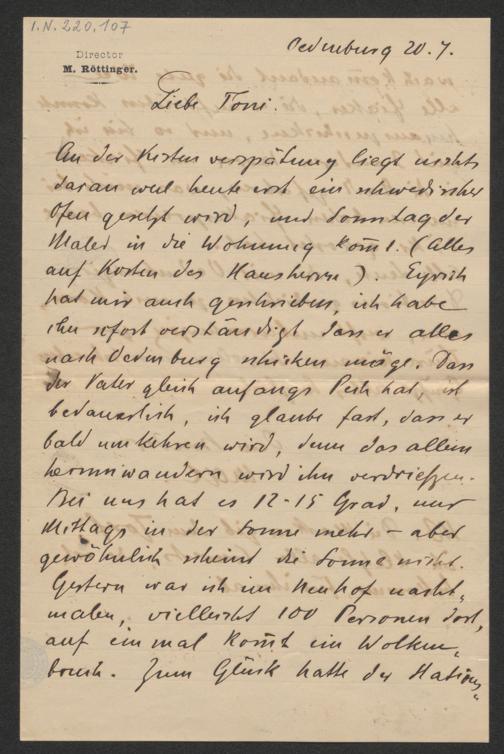 I.N. 220.107
Director
M. Röttinger.
Oedenburg 20.7.
Liebe Toni!
An der Kistenverspätung liegt nichts
daran weil heute erst ein schwedischer
Ofen gesetzt wird, und Sonntag der
Maler in die Wohnung kom̅t. (Alles
auf Kosten des Hausherrn). Eyrich
hat mir auch geschrieben, ich habe
ihn sofort verständigt dass er alles
nach Oedenburg schicken möge. Dass
der Vater gleich anfangs Pech hat, ist
bedauerlich, ich glaube fast, dass er
bald umkehren wird, denn das allein
herumwandern wird ihn verdrießen.
Bei uns hat es 12-15 Grad, nur
Mittags in der Sonne mehr – aber
gewöhnlich scheint die Sonne nicht.
Gestern war ich im Neuhof nacht„
malen, vielleicht 100 Personen dort,
auf einmal kom̅t ein Wolken„
bruch. Zum Glück hatte der